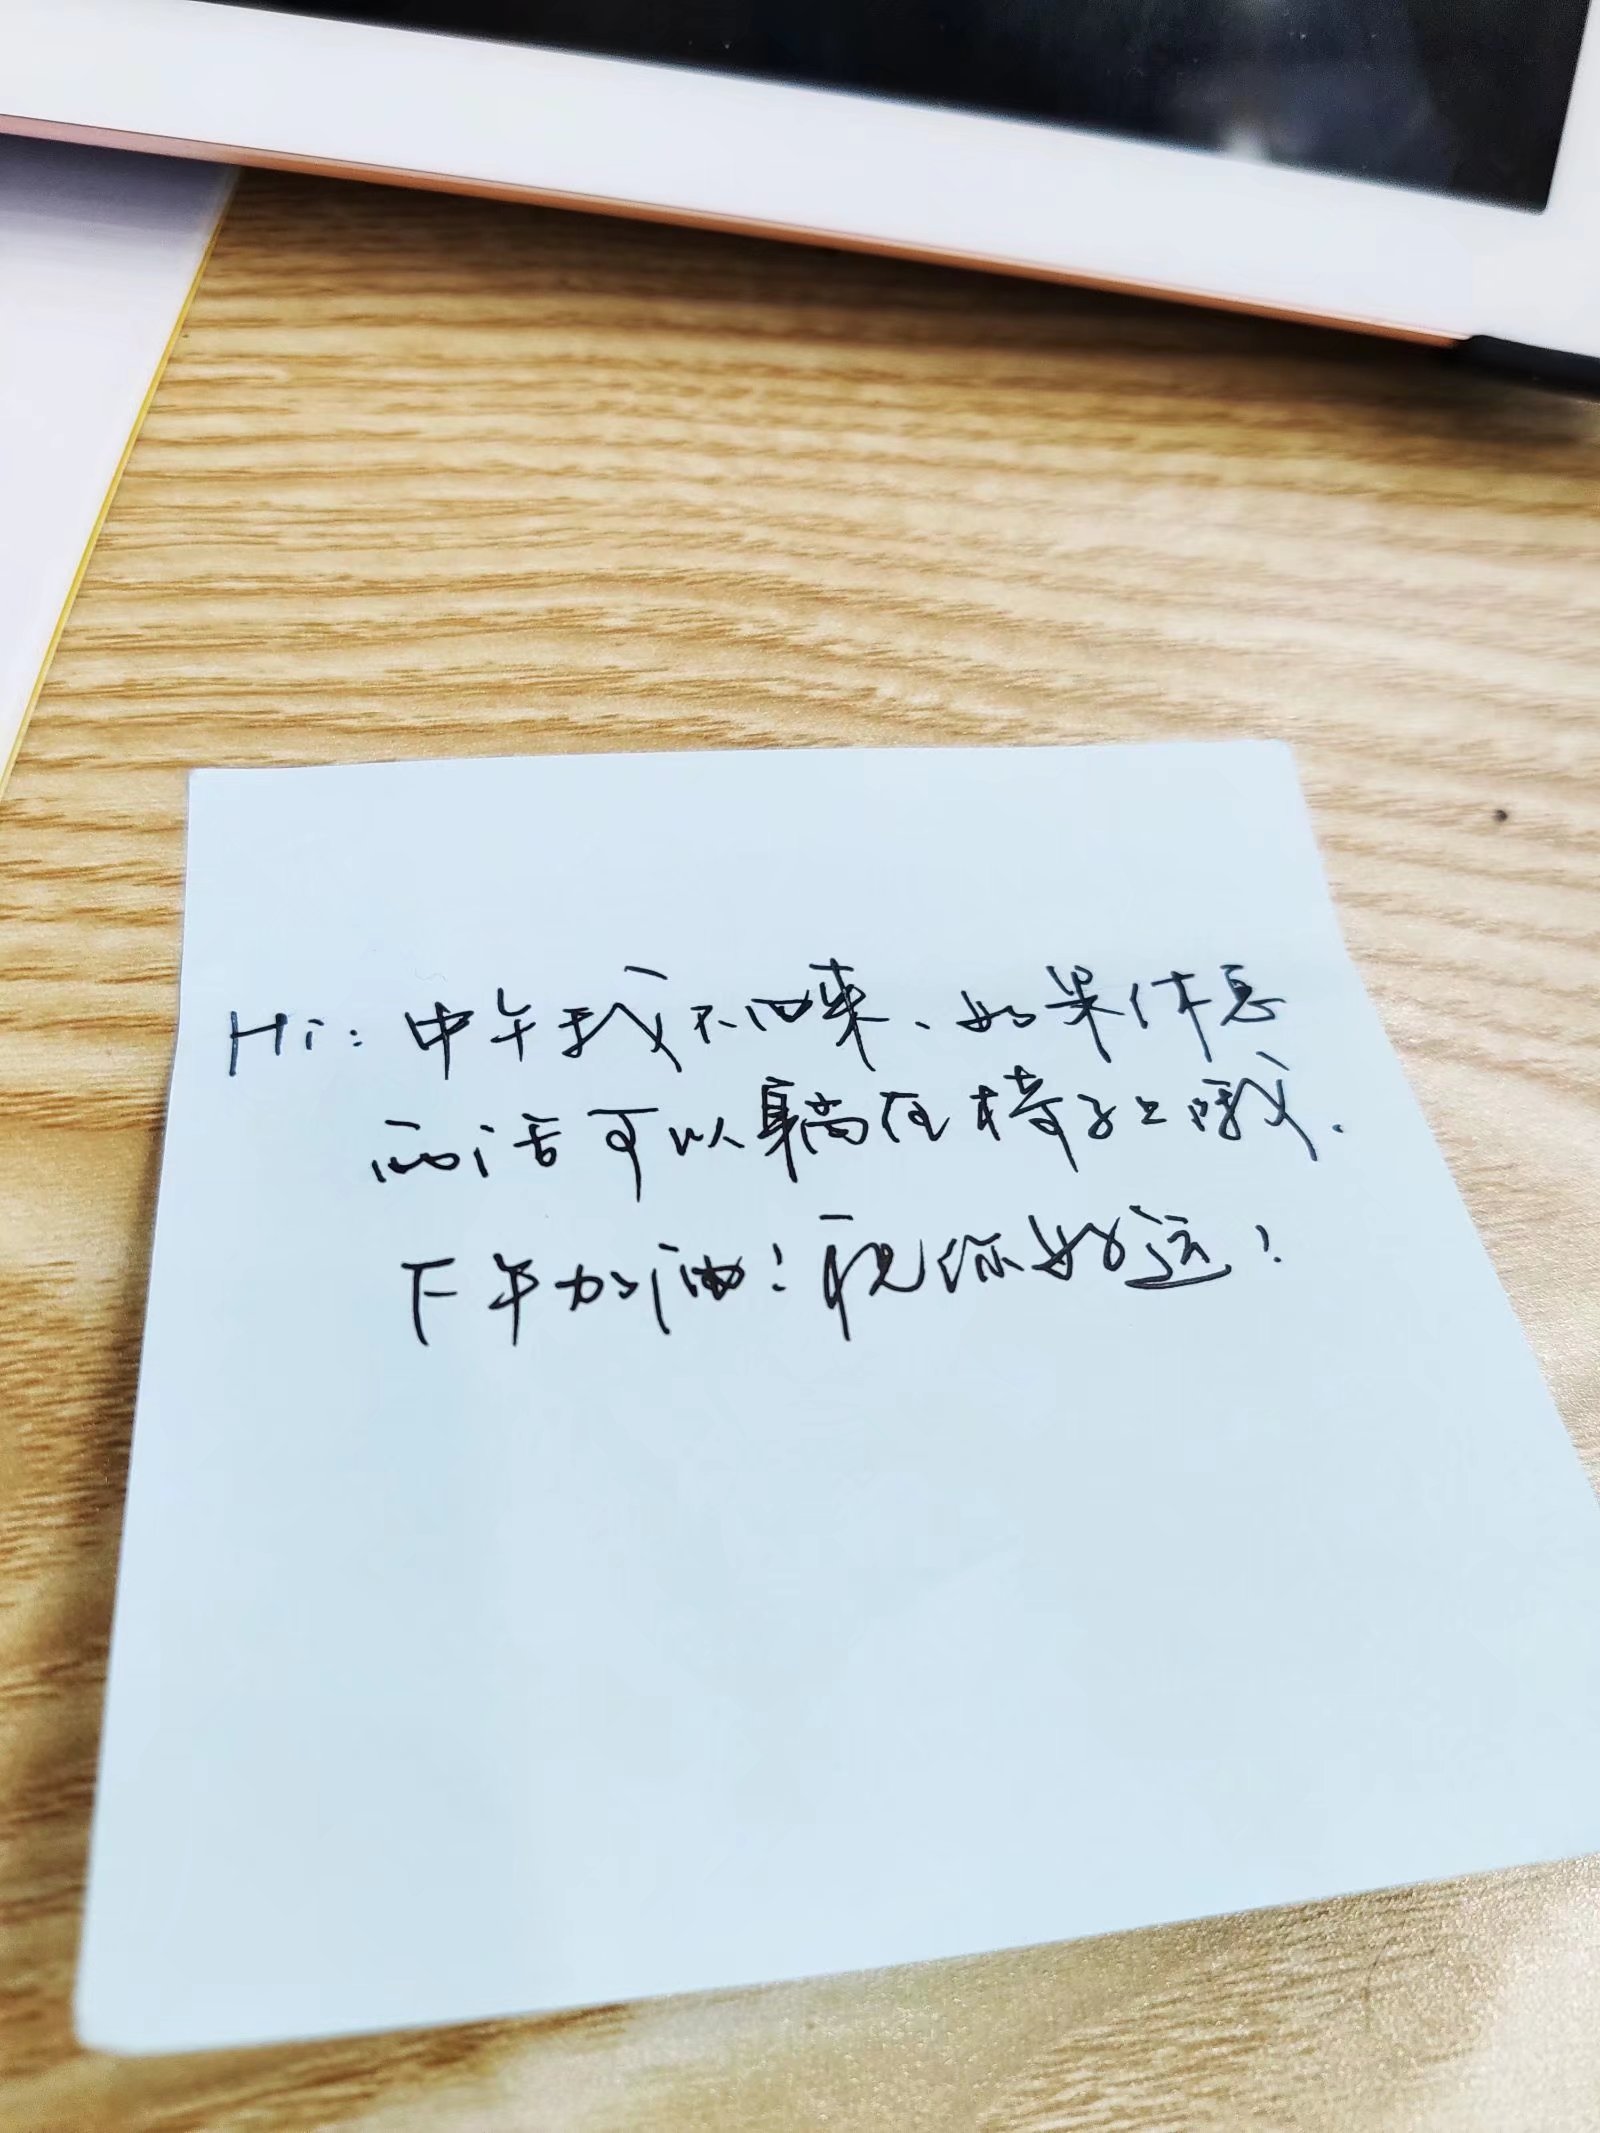 Hi：中午我不回来、如果休息
的话可以躺在椅子上哦.
下午加油！祝你好运！